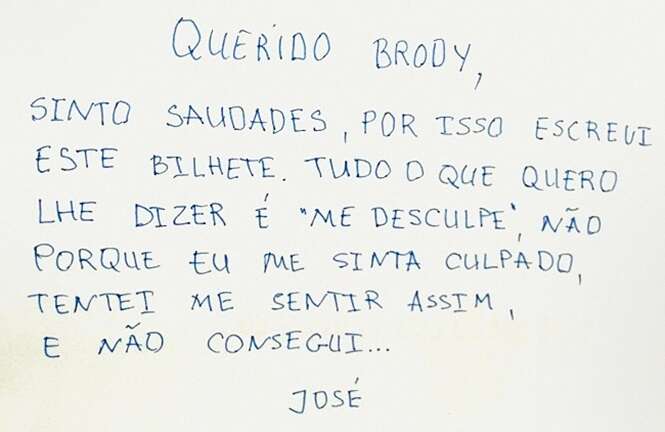 QUERIDO BRODY,
SINTO SAUDADES, POR ISSO ESCREVI
ESTE BILHETE. TUDO O QUE QUERO
LHE DIZER É "ME DESCULPE", NÃO
PORQUE EU ME SINTA CULPADO,
TENTEI ME SENTIR ASSIM,
E NÃO CONSEGUI...
JOSÉ